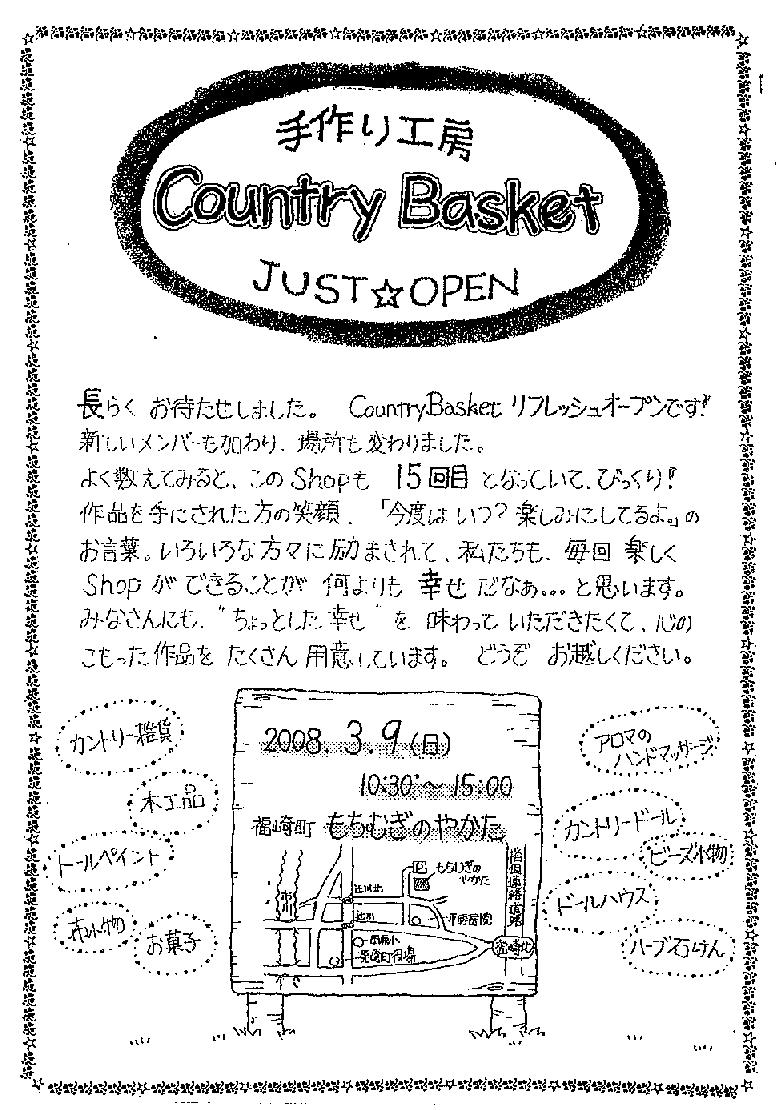 手作り工房
Country Basket
JUST☆OPEN
長らく お待たせしました。 Country Basket リフレッシュオープンです!
新しいメンバーも加わり、場所も変わりました。
よく数えてみると、この Shopも 15回目 となっていて、びっくり!
作品を手にされた方の笑顔、「今度は いつ? 楽しみにしてるよ。」の
お言葉。いろいろな方々に励まされて、私たちも、毎回 楽しく
Shop が できることが 何よりも 幸せ だなぁ...と思います。
みなさんにも、"ちょっとした幸せ"を 味わって いただきたくて、心の
こもった作品を たくさん 用意しています。 どうぞ お越しください。
カントリー雑貨
木工品
トールペイント
布小物
お菓子
2008. 3. 9 (日)
10:30~15:00
福崎町 もちむぎのやかた
市川
辻川北
辻川
P
もちむぎの
やかた
福崎町役場
播但連絡道路
福崎北
アロマの
ハンドマッサージ
カントリードール
ビーズ小物
ドールハウス
ハーブ石けん